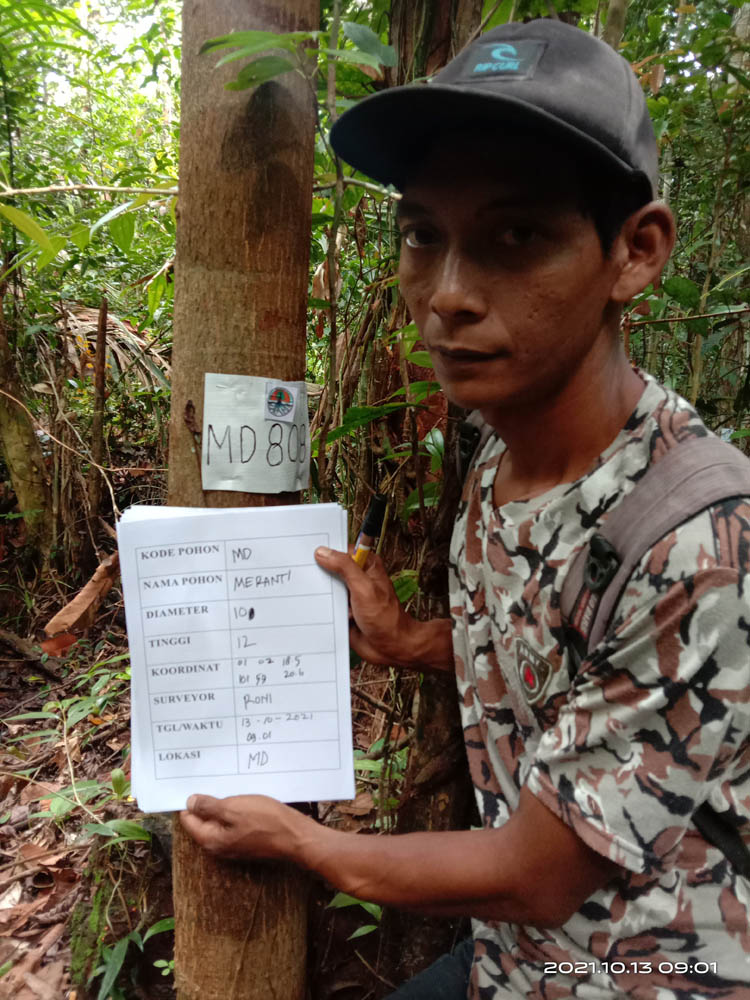 RIP CURL
MD 808
KODE POHON MD
NAMA POHON MERANTI
DIAMETER 10
TINGGI 12
KOORDINAT 01 02 18.5
101 59 20.6
SURVEYOR RONI
TGL/WAKTU 13-10-2021
09.01
LOKASI MD
2021.10.13 09:01